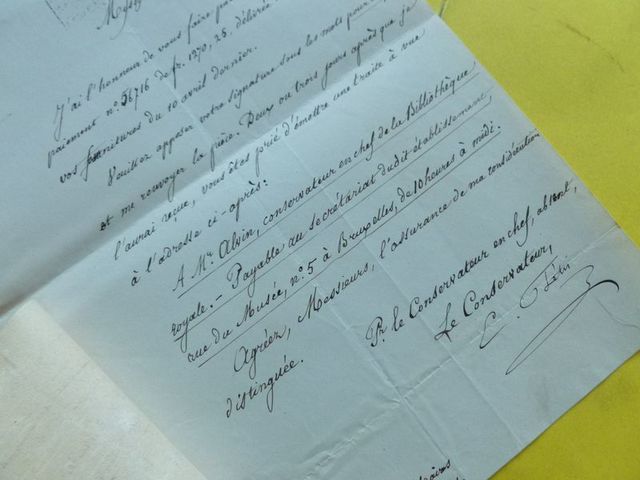 J'ai l'honneur de vous faire
paiement n° 56716 de fr. 1370,25. délivré
vos fournitures du 10 avril dernier.
Veuillez apposer votre signature sous les mots pour
et me renvoyer la pièce. Deux ou trois jours après que je
l'aurai reçue, vous êtes prié d'émettre une traite à vue
à l'adresse ci-après:
A Mr. Alvin, conservateur en chef de la Bibliothèque
royale. – Payable au secrétariat dudit établissement,
rue du Musée, n° 5 à Bruxelles, de 10 heures à midi.
Agréez, Messieurs, l'assurance de ma considération
distinguée.
Pr. le Conservateur en chef, absent,
Le Conservateur,